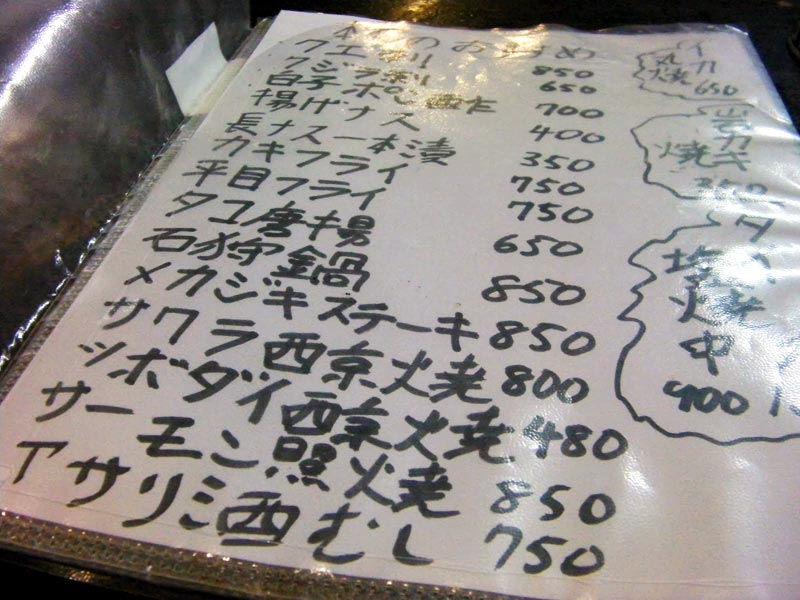 本日のおすすめ
クエ刺 850
クジラ刺 650
白子ポン酢 700
揚げナス 400
長ナス一本漬 350
カキフライ 750
平目フライ 750
タコ唐揚 650
石狩鍋 850
メカジキステーキ 850
サワラ西京焼 800
ツボダイ西京焼 480
サーモン照焼 850
アサリ酒むし 750
イカ
丸焼 650
岩ガキ
焼
塩焼
中
900